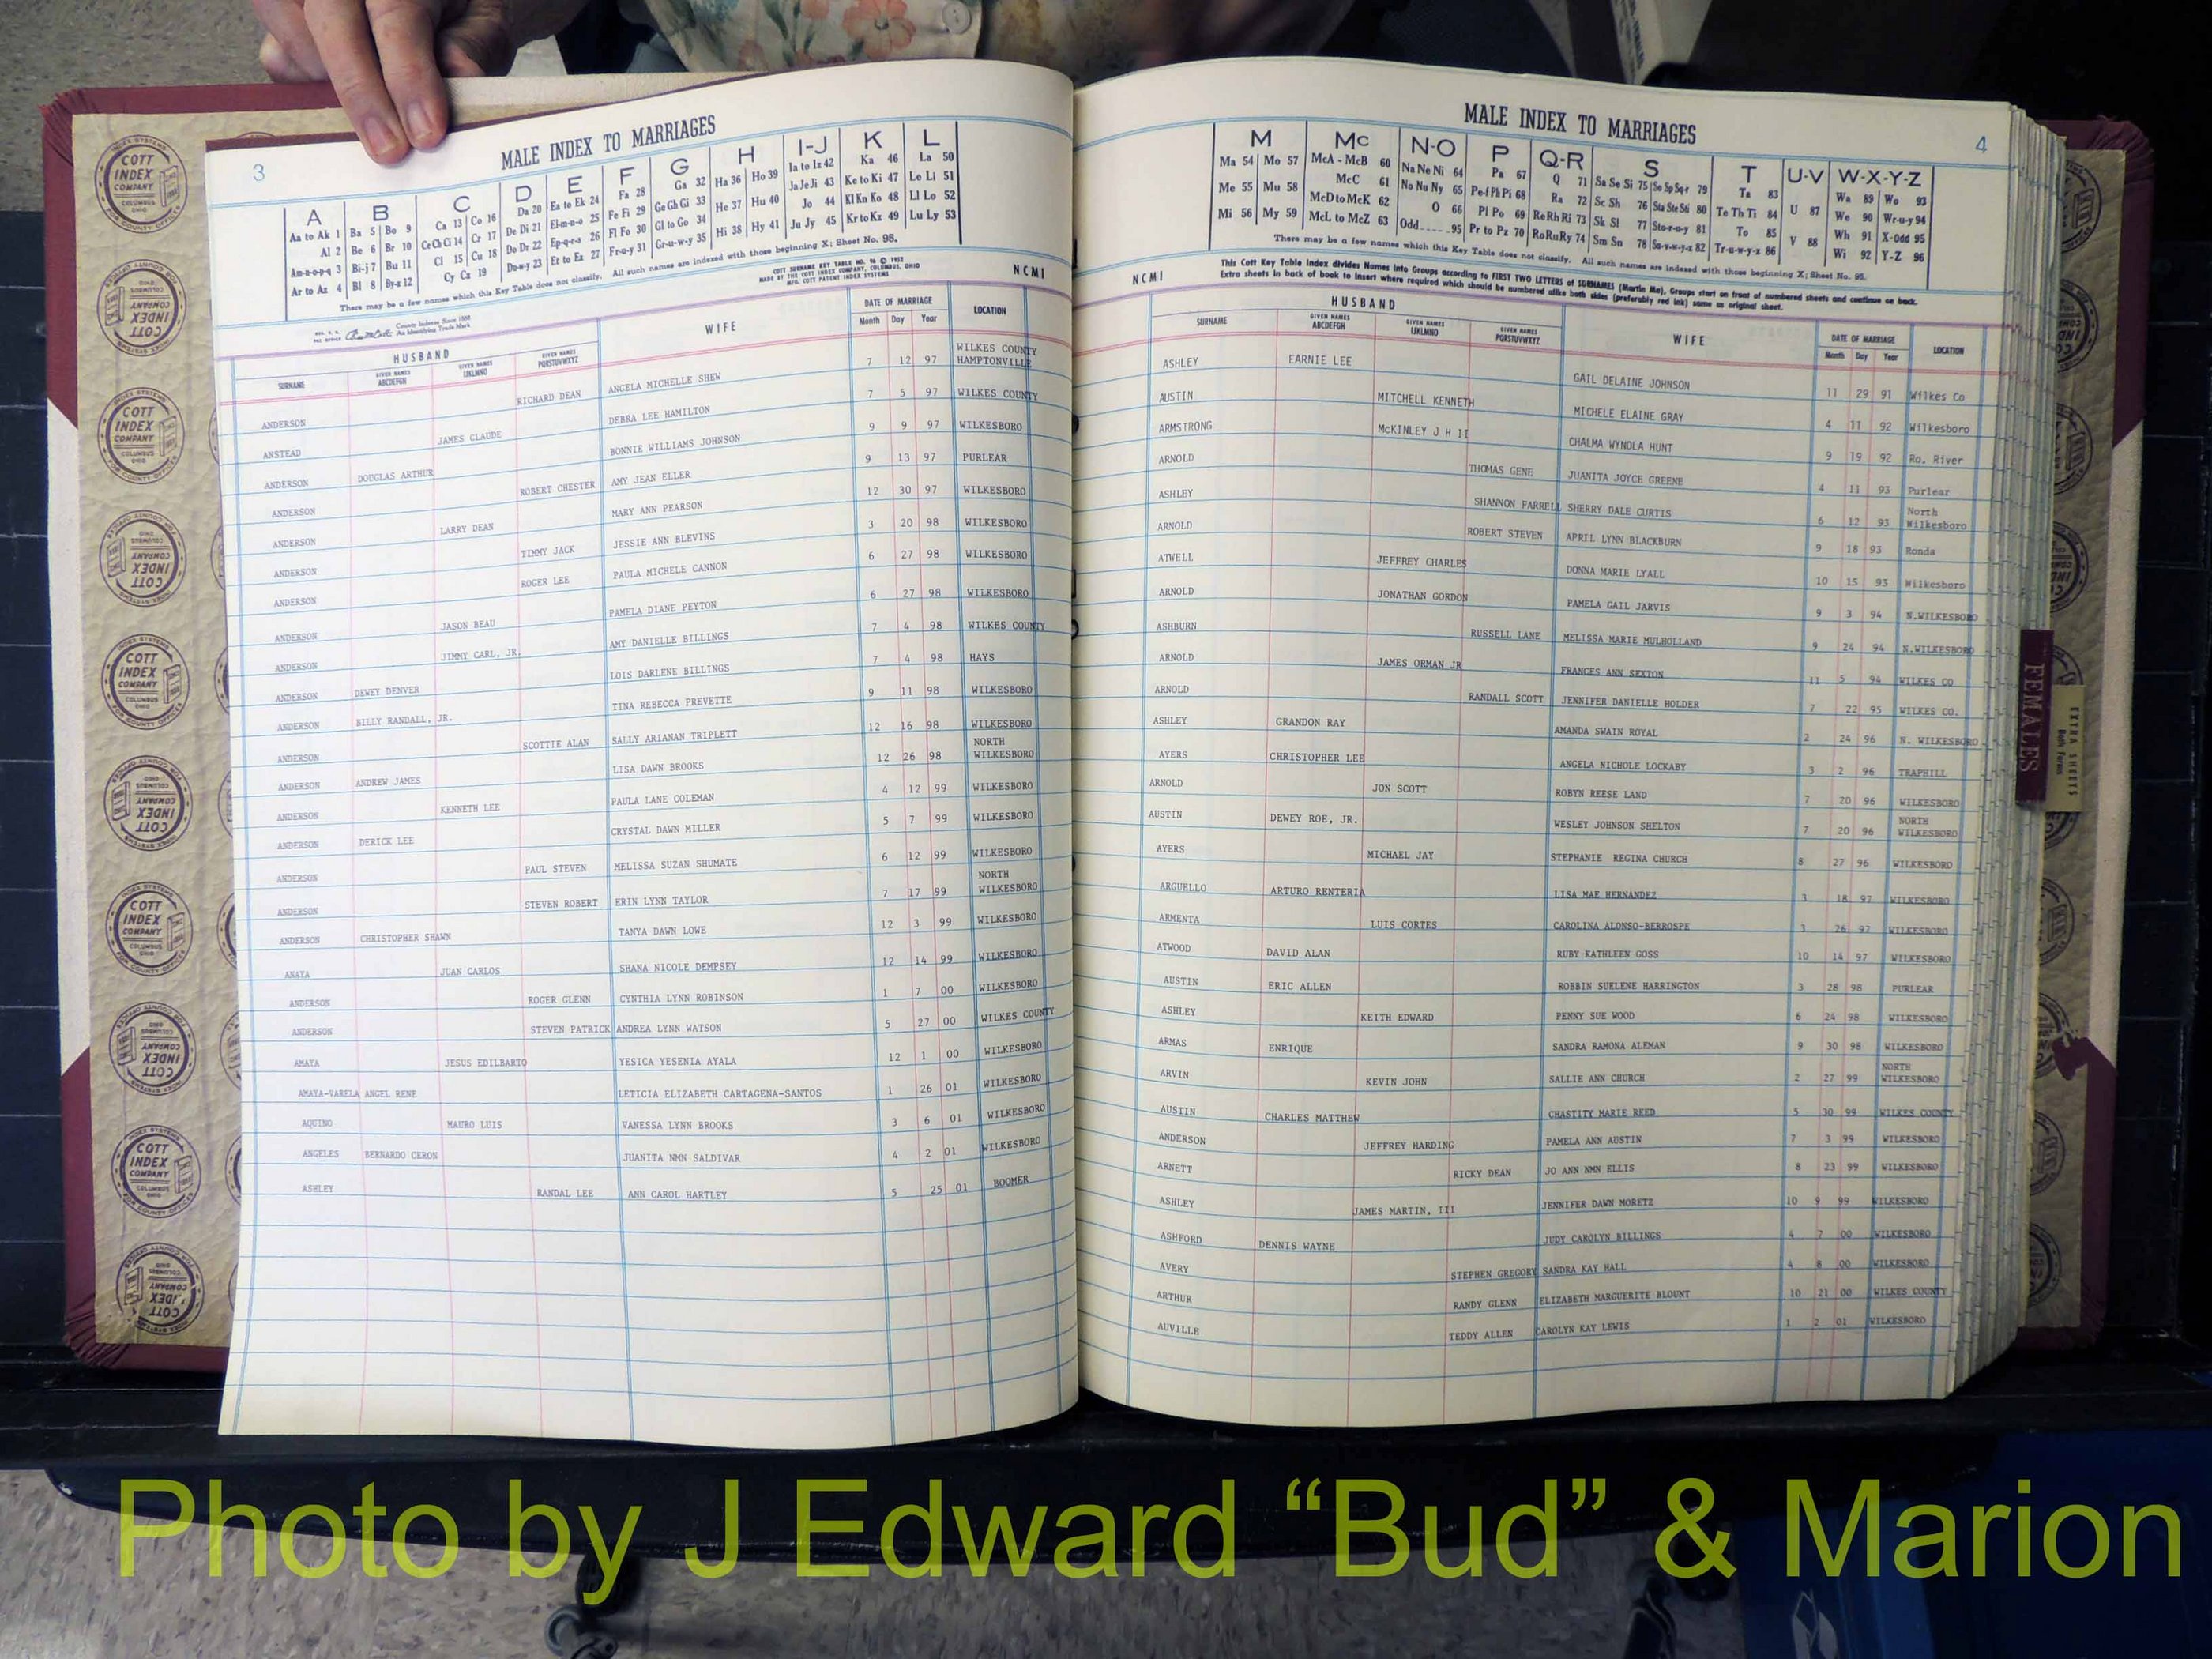 3
MALE INDEX TO MARRIAGES
A B C D E F G H I-J K L
Aa to Ak 1 Ba 5 Bo 9 Ca 13 Co 16 Da 20 Ea to Ek 24 Fa 28 Ga 32 Ha 36 Ho 39 Ia to Iz 42 Ka 46 La 50
Al 2 Be 6 Br 10 Ce Ch Ci 14 Cr 17 De Di 21 El-m-n-o 25 Fe Fi 29 Ge Gh Gi 33 He 37 Hu 40 Ja Je Ji 43 Ke to Ki 47 Le Li 51
Am-n-o-p-q 3 Bi-j 7 Bu 11 Cl 15 Cu 18 Do Dr 22 Ep-q-r-s 26 Fl Fo 30 Gl to Go 34 Hi 38 Hy 41 Jo 44 Kl Kn Ko 48 Ll Lo 52
Ar to Az 4 Bl 8 By-z 12 Cy Cz 19 Du-w-y 23 Et to Ez 27 Fr-u-y 31 Gr-u-w-y 35 Ju Jy 45 Kr to Kz 49 Lu Ly 53
There may be a few names which this Key Table does not classify. All such names are indexed with those beginning X; Sheet No. 95.
COTT SURNAME KEY TABLE NO. 96 © 1952
MADE BY THE COTT INDEX COMPANY, COLUMBUS, OHIO
MFG. COTT PATENT INDEX SYSTEMS
NCMI
County Indexes Since 1888
An Identifying Trade Mark
HUSBAND WIFE DATE OF MARRIAGE LOCATION
SURNAME GIVEN NAMES ABCDEFGH GIVEN NAMES IJKLMNO GIVEN NAMES PQRSTUVWXYZ Month Day Year
ANDERSON RICHARD DEAN ANGELA MICHELLE SHEW 7 12 97 WILKES COUNTY HAMPTONVILLE
ANSTEAD JAMES CLAUDE DEBRA LEE HAMILTON 7 5 97 WILKES COUNTY
ANDERSON DOUGLAS ARTHUR BONNIE WILLIAMS JOHNSON 9 9 97 WILKESBORO
ANDERSON ROBERT CHESTER AMY JEAN ELLER 9 13 97 PURLEAR
ANDERSON LARRY DEAN MARY ANN PEARSON 12 30 97 WILKESBORO
ANDERSON TIMMY JACK JESSIE ANN BLEVINS 3 20 98 WILKESBORO
ANDERSON ROGER LEE PAULA MICHELE CANNON 6 27 98 WILKESBORO
ANDERSON JASON BEAU PAMELA DIANE PEYTON 6 27 98 WILKESBORO
ANDERSON JIMMY CARL, JR. AMY DANIELLE BILLINGS 7 4 98 WILKES COUNTY
ANDERSON DEWEY DENVER LOIS DARLENE BILLINGS 7 4 98 HAYS
ANDERSON BILLY RANDALL, JR. TINA REBECCA PREVETTE 9 11 98 WILKESBORO
ANDERSON SCOTTIE ALAN SALLY ARIANAN TRIPLETT 12 16 98 WILKESBORO
ANDERSON ANDREW JAMES LISA DAWN BROOKS 12 26 98 NORTH WILKESBORO
ANDERSON KENNETH LEE PAULA LANE COLEMAN 4 12 99 WILKESBORO
ANDERSON DERICK LEE CRYSTAL DAWN MILLER 5 7 99 WILKESBORO
ANDERSON PAUL STEVEN MELISSA SUZAN SHUMATE 6 12 99 WILKESBORO
ANDERSON STEVEN ROBERT ERIN LYNN TAYLOR 7 17 99 NORTH WILKESBORO
ANDERSON CHRISTOPHER SHAWN TANYA DAWN LOWE 12 3 99 WILKESBORO
ANAYA JUAN CARLOS SHANA NICOLE DEMPSEY 12 14 99 WILKESBORO
ANDERSON ROGER GLENN CYNTHIA LYNN ROBINSON 1 7 00 WILKESBORO
ANDERSON STEVEN PATRICK ANDREA LYNN WATSON 5 27 00 WILKES COUNTY
AMAYA JESUS EDILBARTO YESICA YESENIA AYALA 12 1 00 WILKESBORO
AMAYA-VARELA ANGEL RENE LETICIA ELIZABETH CARTAGENA-SANTOS 1 26 01 WILKESBORO
AQUINO MAURO LUIS VANESSA LYNN BROOKS 3 6 01 WILKESBORO
ANGELES BERNARDO CERON JUANITA NMN SALDIVAR 4 2 01 WILKESBORO
ASHLEY RANDAL LEE ANN CAROL HARTLEY 5 25 01 BOOMER
MALE INDEX TO MARRIAGES
4
M Mc N-O P Q-R S T U-V W-X-Y-Z
Ma 54 Mo 57 McA - McB 60 Na Ne Ni 64 Pa 67 Q 71 Sa Se Si 75 So Sp Sq-r 79 Ta 83 Wa 89 Wo 93
Me 55 Mu 58 McC 61 No Nu Ny 65 Pe-f Ph Pi 68 Ra 72 Sc Sh 76 Sta Ste Sti 80 Te Th Ti 84 U 87 We 90 Wr-u-y 94
Mi 56 My 59 McD to McK 62 O 66 Pl Po 69 Re Rh Ri 73 Sk Sl 77 Sto-r-u-y 81 To 85 V 88 Wh 91 X-Odd 95
McL to McZ 63 Odd 95 Pr to Pz 70 Ro Ru Ry 74 Sm Sn 78 Su-v-w-y-z 82 Tr-u-w-y-z 86 Wi 92 Y-Z 96
There may be a few names which this Key Table does not classify. All such names are indexed with those beginning X; Sheet No. 95.
NCMI
This Cott Key Table Index divides Names into Groups according to FIRST TWO LETTERS of SURNAMES (Martin Ma), Groups start on front of numbered sheets and continue on back.
Extra sheets in back of book to insert where required which should be numbered alike both sides (preferably red ink) same as original sheet.
HUSBAND WIFE DATE OF MARRIAGE LOCATION
SURNAME GIVEN NAMES ABCDEFGH GIVEN NAMES IJKLMNO GIVEN NAMES PQRSTUVWXYZ Month Day Year
ASHLEY EARNIE LEE GAIL DELAINE JOHNSON 11 29 91 Wilkes Co
AUSTIN MITCHELL KENNETH MICHELE ELAINE GRAY 4 11 92 Wilkesboro
ARMSTRONG McKINLEY J H II CHALMA WYNOLA HUNT 9 19 92 Ro. River
ARNOLD THOMAS GENE JUANITA JOYCE GREENE 4 11 93 Purlear
ASHLEY SHANNON FARRELL SHERRY DALE CURTIS 6 12 93 North Wilkesboro
ARNOLD ROBERT STEVEN APRIL LYNN BLACKBURN 9 18 93 Ronda
ATWELL JEFFREY CHARLES DONNA MARIE LYALL 10 15 93 Wilkesboro
ARNOLD JONATHAN GORDON PAMELA GAIL JARVIS 9 3 94 N.WILKESBORO
ASHBURN RUSSELL LANE MELISSA MARIE MULHOLLAND 9 24 94 N.WILKESBORO
ARNOLD JAMES ORMAN JR FRANCES ANN SEXTON 11 5 94 WILKES CO
ARNOLD RANDALL SCOTT JENNIFER DANIELLE HOLDER 7 22 95 WILKES CO.
ASHLEY GRANDON RAY AMANDA SWAIN ROYAL 2 24 96 N. WILKESBORO
AYERS CHRISTOPHER LEE ANGELA NICHOLE LOCKABY 3 2 96 TRAPHILL
ARNOLD JON SCOTT ROBYN REESE LAND 7 20 96 WILKESBORO
AUSTIN DEWEY ROE, JR. WESLEY JOHNSON SHELTON 7 20 96 NORTH WILKESBORO
AYERS MICHAEL JAY STEPHANIE REGINA CHURCH 8 27 96 WILKESBORO
ARGUELLO ARTURO RENTERIA LISA MAE HERNANDEZ 3 18 97 WILKESBORO
ARMENTA LUIS CORTES CAROLINA ALONSO-BERROSPE 3 26 97 WILKESBORO
ATWOOD DAVID ALAN RUBY KATHLEEN GOSS 10 14 97 WILKESBORO
AUSTIN ERIC ALLEN ROBBIN SUELENE HARRINGTON 3 28 98 PURLEAR
ASHLEY KEITH EDWARD PENNY SUE WOOD 6 24 98 WILKESBORO
ARMAS ENRIQUE SANDRA RAMONA ALEMAN 9 30 98 WILKESBORO
ARVIN KEVIN JOHN SALLIE ANN CHURCH 2 27 99 NORTH WILKESBORO
AUSTIN CHARLES MATTHEW CHASTITY MARIE REED 5 30 99 WILKES COUNTY
ANDERSON JEFFREY HARDING PAMELA ANN AUSTIN 7 3 99 WILKESBORO
ARNETT RICKY DEAN JO ANN NMN ELLIS 8 23 99 WILKESBORO
ASHLEY JAMES MARTIN, III JENNIFER DAWN MORETZ 10 9 99 WILKESBORO
ASHFORD DENNIS WAYNE JUDY CAROLYN BILLINGS 4 7 00 WILKESBORO
AVERY STEPHEN GREGORY SANDRA KAY HALL 4 8 00 WILKESBORO
ARTHUR RANDY GLENN ELIZABETH MARGUERITE BLOUNT 10 21 00 WILKES COUNTY
AUVILLE TEDDY ALLEN CAROLYN KAY LEWIS 1 2 01 WILKESBORO
FEMALES
EXTRA SHEETS
Both Forms
COTT INDEX COMPANY COLUMBUS OHIO
INDEX SYSTEMS FOR COUNTY OFFICES
Photo by J Edward “Bud” & Marion